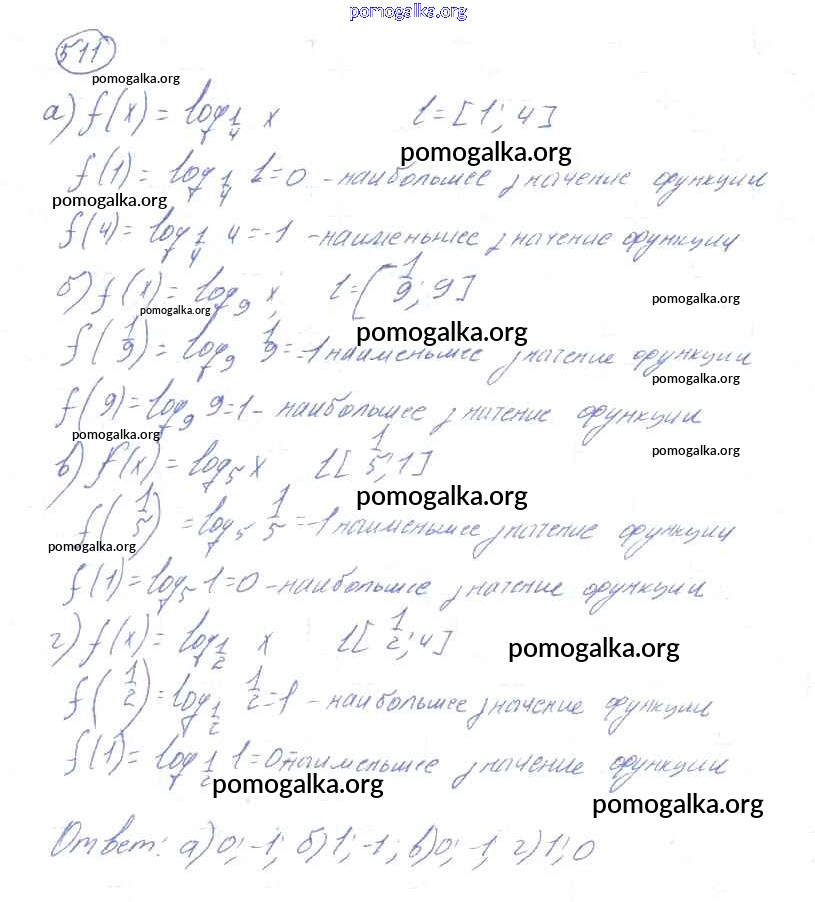 pomogalka.org
511
pomogalka.org
а) f(x) = log 1/4 x l = [1; 4]
pomogalka.org
f(1) = log 1/4 1 = 0 - наибольшее значение функции
pomogalka.org
f(4) = log 1/4 4 = -1 - наименьшее значение функции
б) f(x) = log 9 x, l = [1/9; 9]
pomogalka.org
pomogalka.org
pomogalka.org
f(1/9) = log 9 1/9 = -1 наименьшее значение функции
pomogalka.org
f(9) = log 9 9 = 1 - наибольшее значение функции
pomogalka.org
pomogalka.org
в) f(x) = log 5 x l [1/5; 1]
pomogalka.org
f(1/5) = log 5 1/5 = -1 наименьшее значение функции
pomogalka.org
f(1) = log 5 1 = 0 - наибольшее значение функции
г) f(x) = log 1/2 x l [1/2; 4]
pomogalka.org
f(1/2) = log 1/2 1/2 = 1 - наибольшее значение функции
f(1) = log 1/2 1 = 0 наименьшее значение функции
pomogalka.org
pomogalka.org
Ответ: а) 0; -1; б) 1; -1; в) 0; -1; г) 1; 0